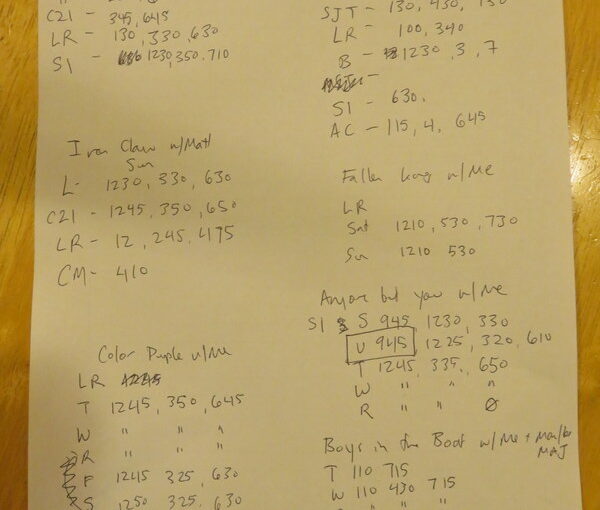 C21 - 345, 645
LR - 130, 330, 630
S1 - 1230, 350, 710
Iron Claw w/Matt
Sun
L - 1230, 330, 630
C21 - 1245, 350, 650
LR - 12, 245,
CM - 410
Color Purple w/Me
LR
T 1245, 350, 645
W " " "
R " " "
F 1245 325, 630
S 1250 325, 630
SJT - 130, 430,
LR - 100, 340
B - 1230, 3, 7
S1 - 630,
AC - 115, 4, 645
Fallen w/Me
LR
Sat 1210, 530, 730
Sun 1210 530
Anyone but you w/Me
S1 S 945 1230, 330
U 945 1225, 320, 610
T 1245, 335, 650
W " " "
R " " Ø
Boys in the Boat w/Me +
MAJ
T 110 715
W 110 430 715